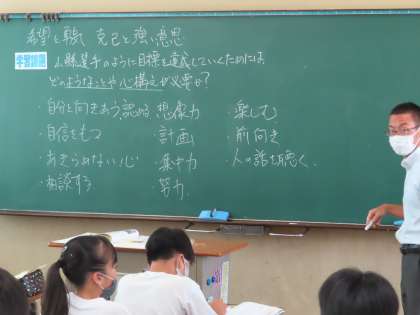 希望と勇気 克己と強い意思
学習課題 山縣選手のように目標を達成していくためには、
どのようなことや心構えが必要か?
・自分と向きあう、認める
・自信をもつ
・あきらめない心
・相談する
・想像力
・計画
・集中力
・努力
・楽しむ
・前向き
・人の話を聴く